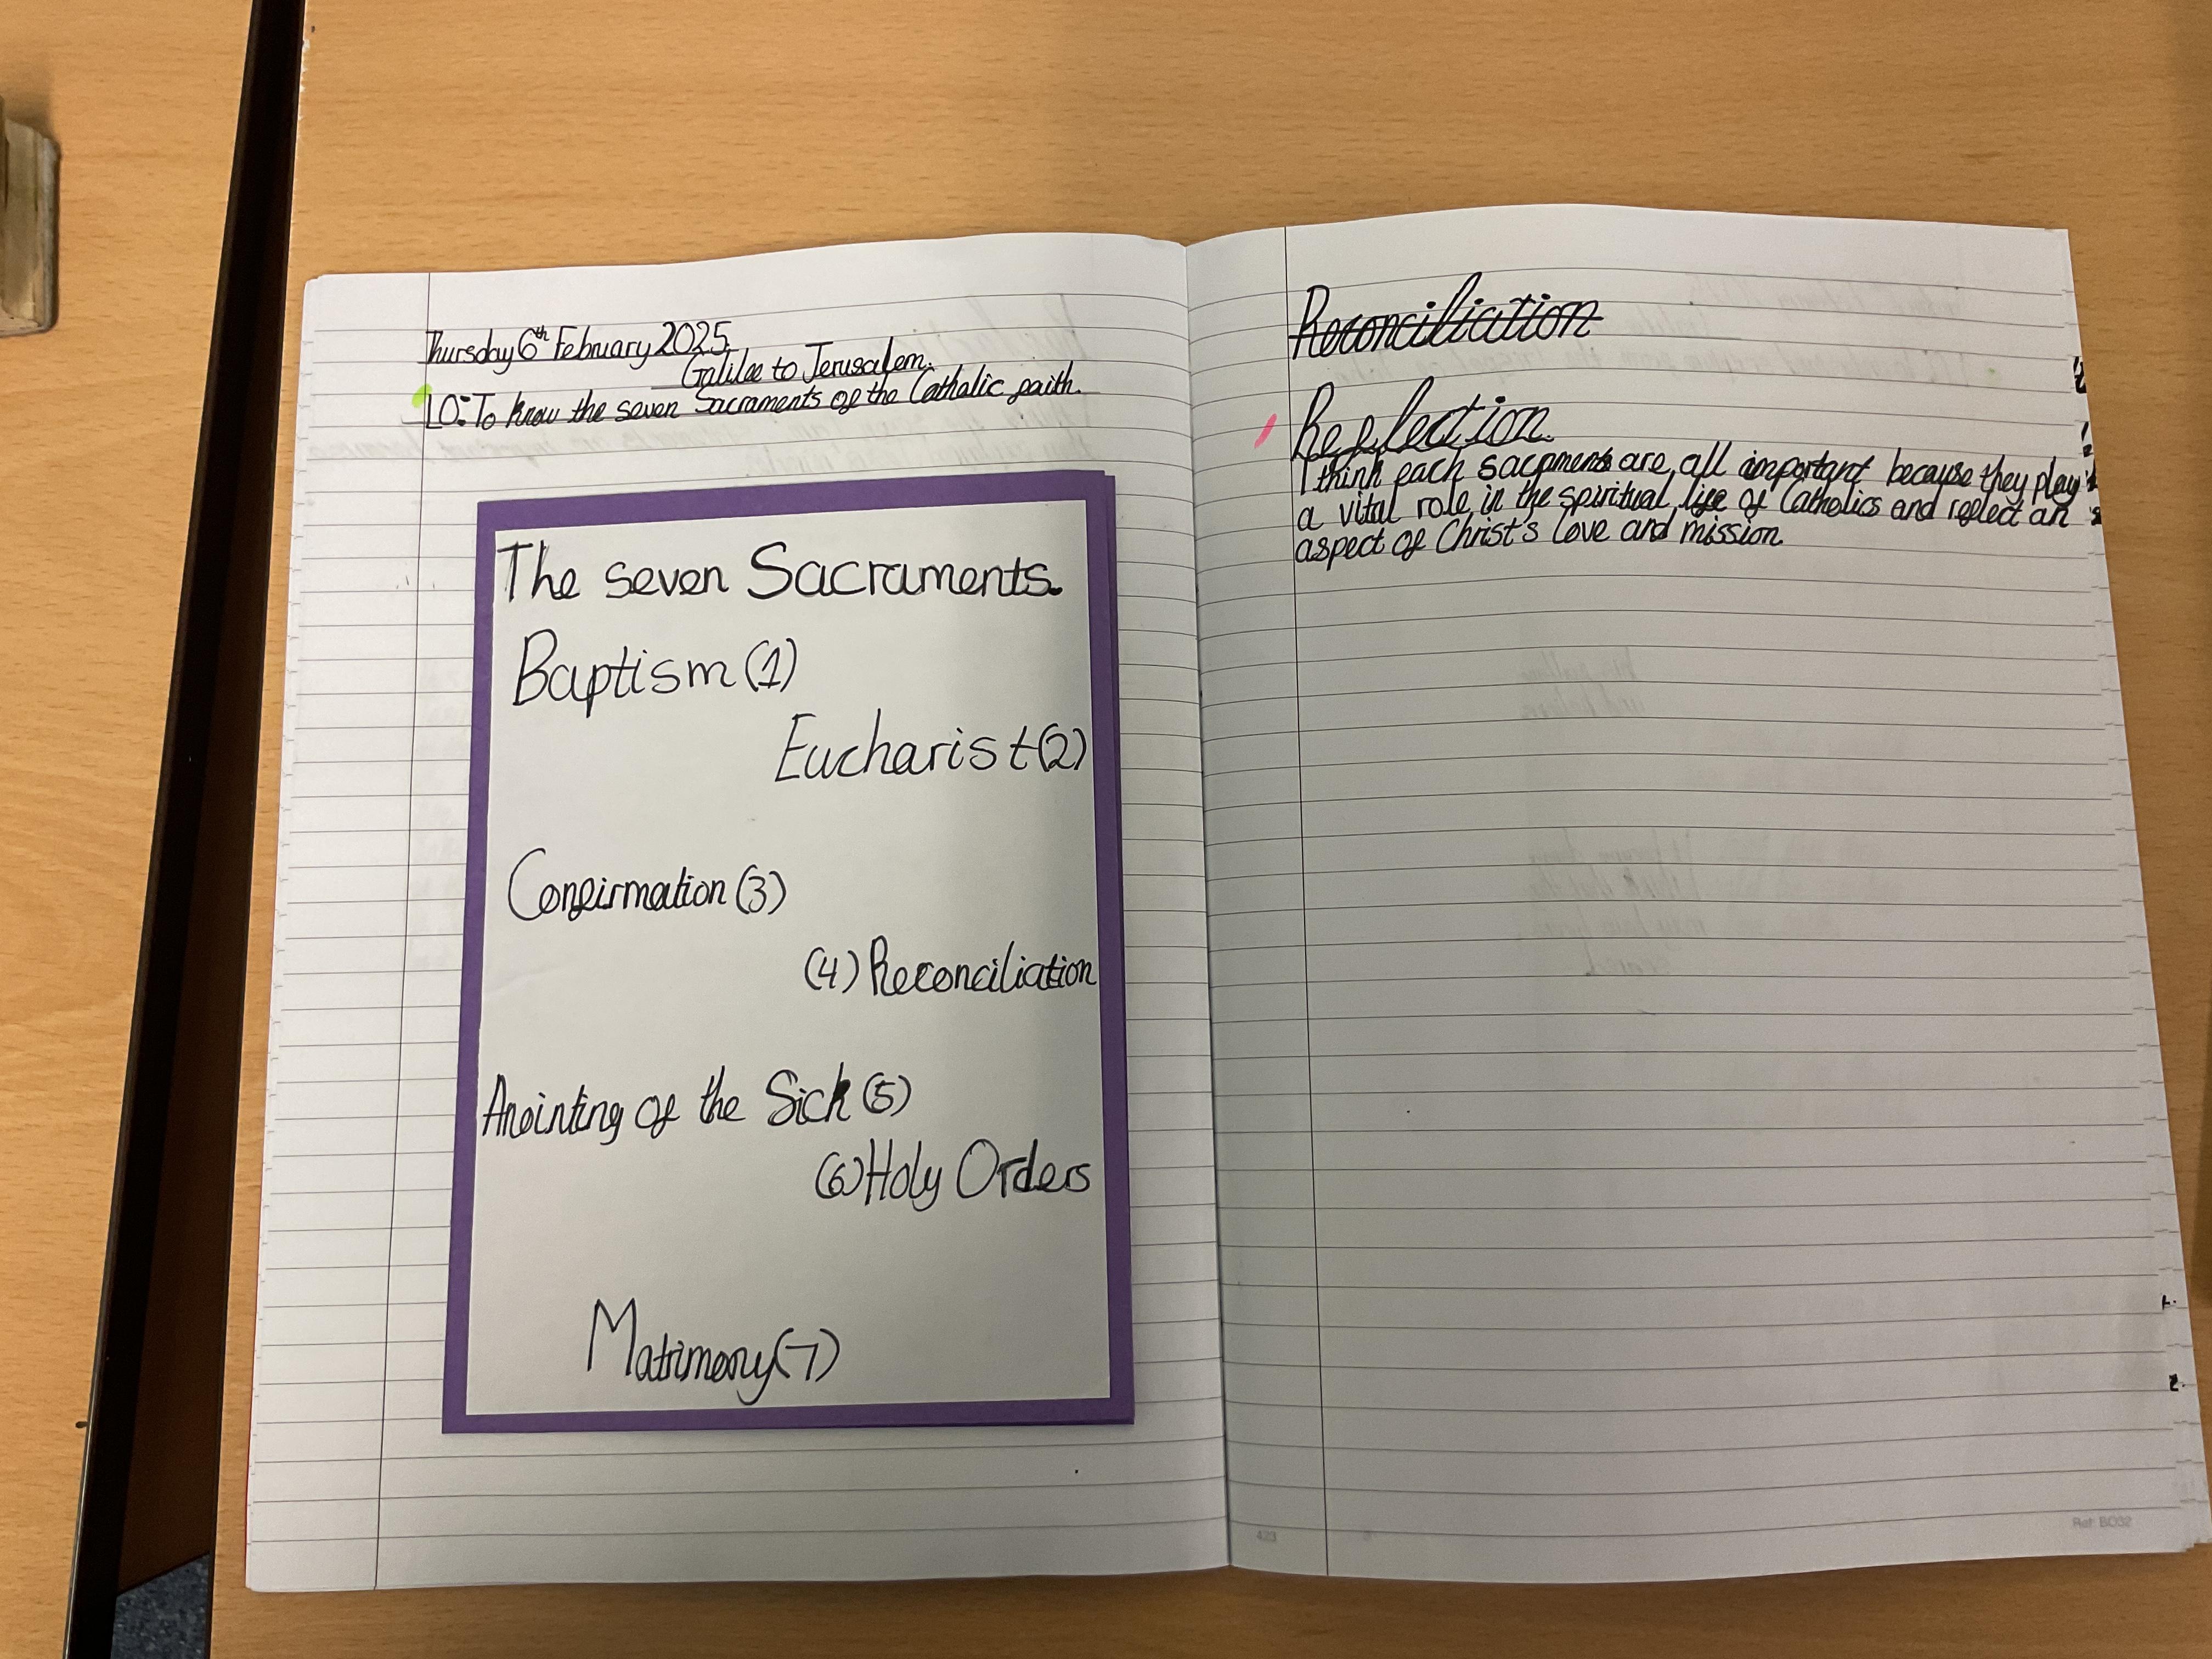 Thursday 6th February 2025.
Galilee to Jerusalem.
LO: To know the seven Sacraments of the Catholic faith.
The seven Sacraments.
Baptism (1)
Eucharist (2)
Confirmation (3)
(4) Reconciliation
Anointing of the Sick (5)
(6) Holy Orders
Matrimony (7)
Reconciliation
Reflection.
I think each sacrments are all important because they play
a vital role in the spiritual life of Catholics and reflect an
aspect of Christ's love and mission.
423
Ref: BO32